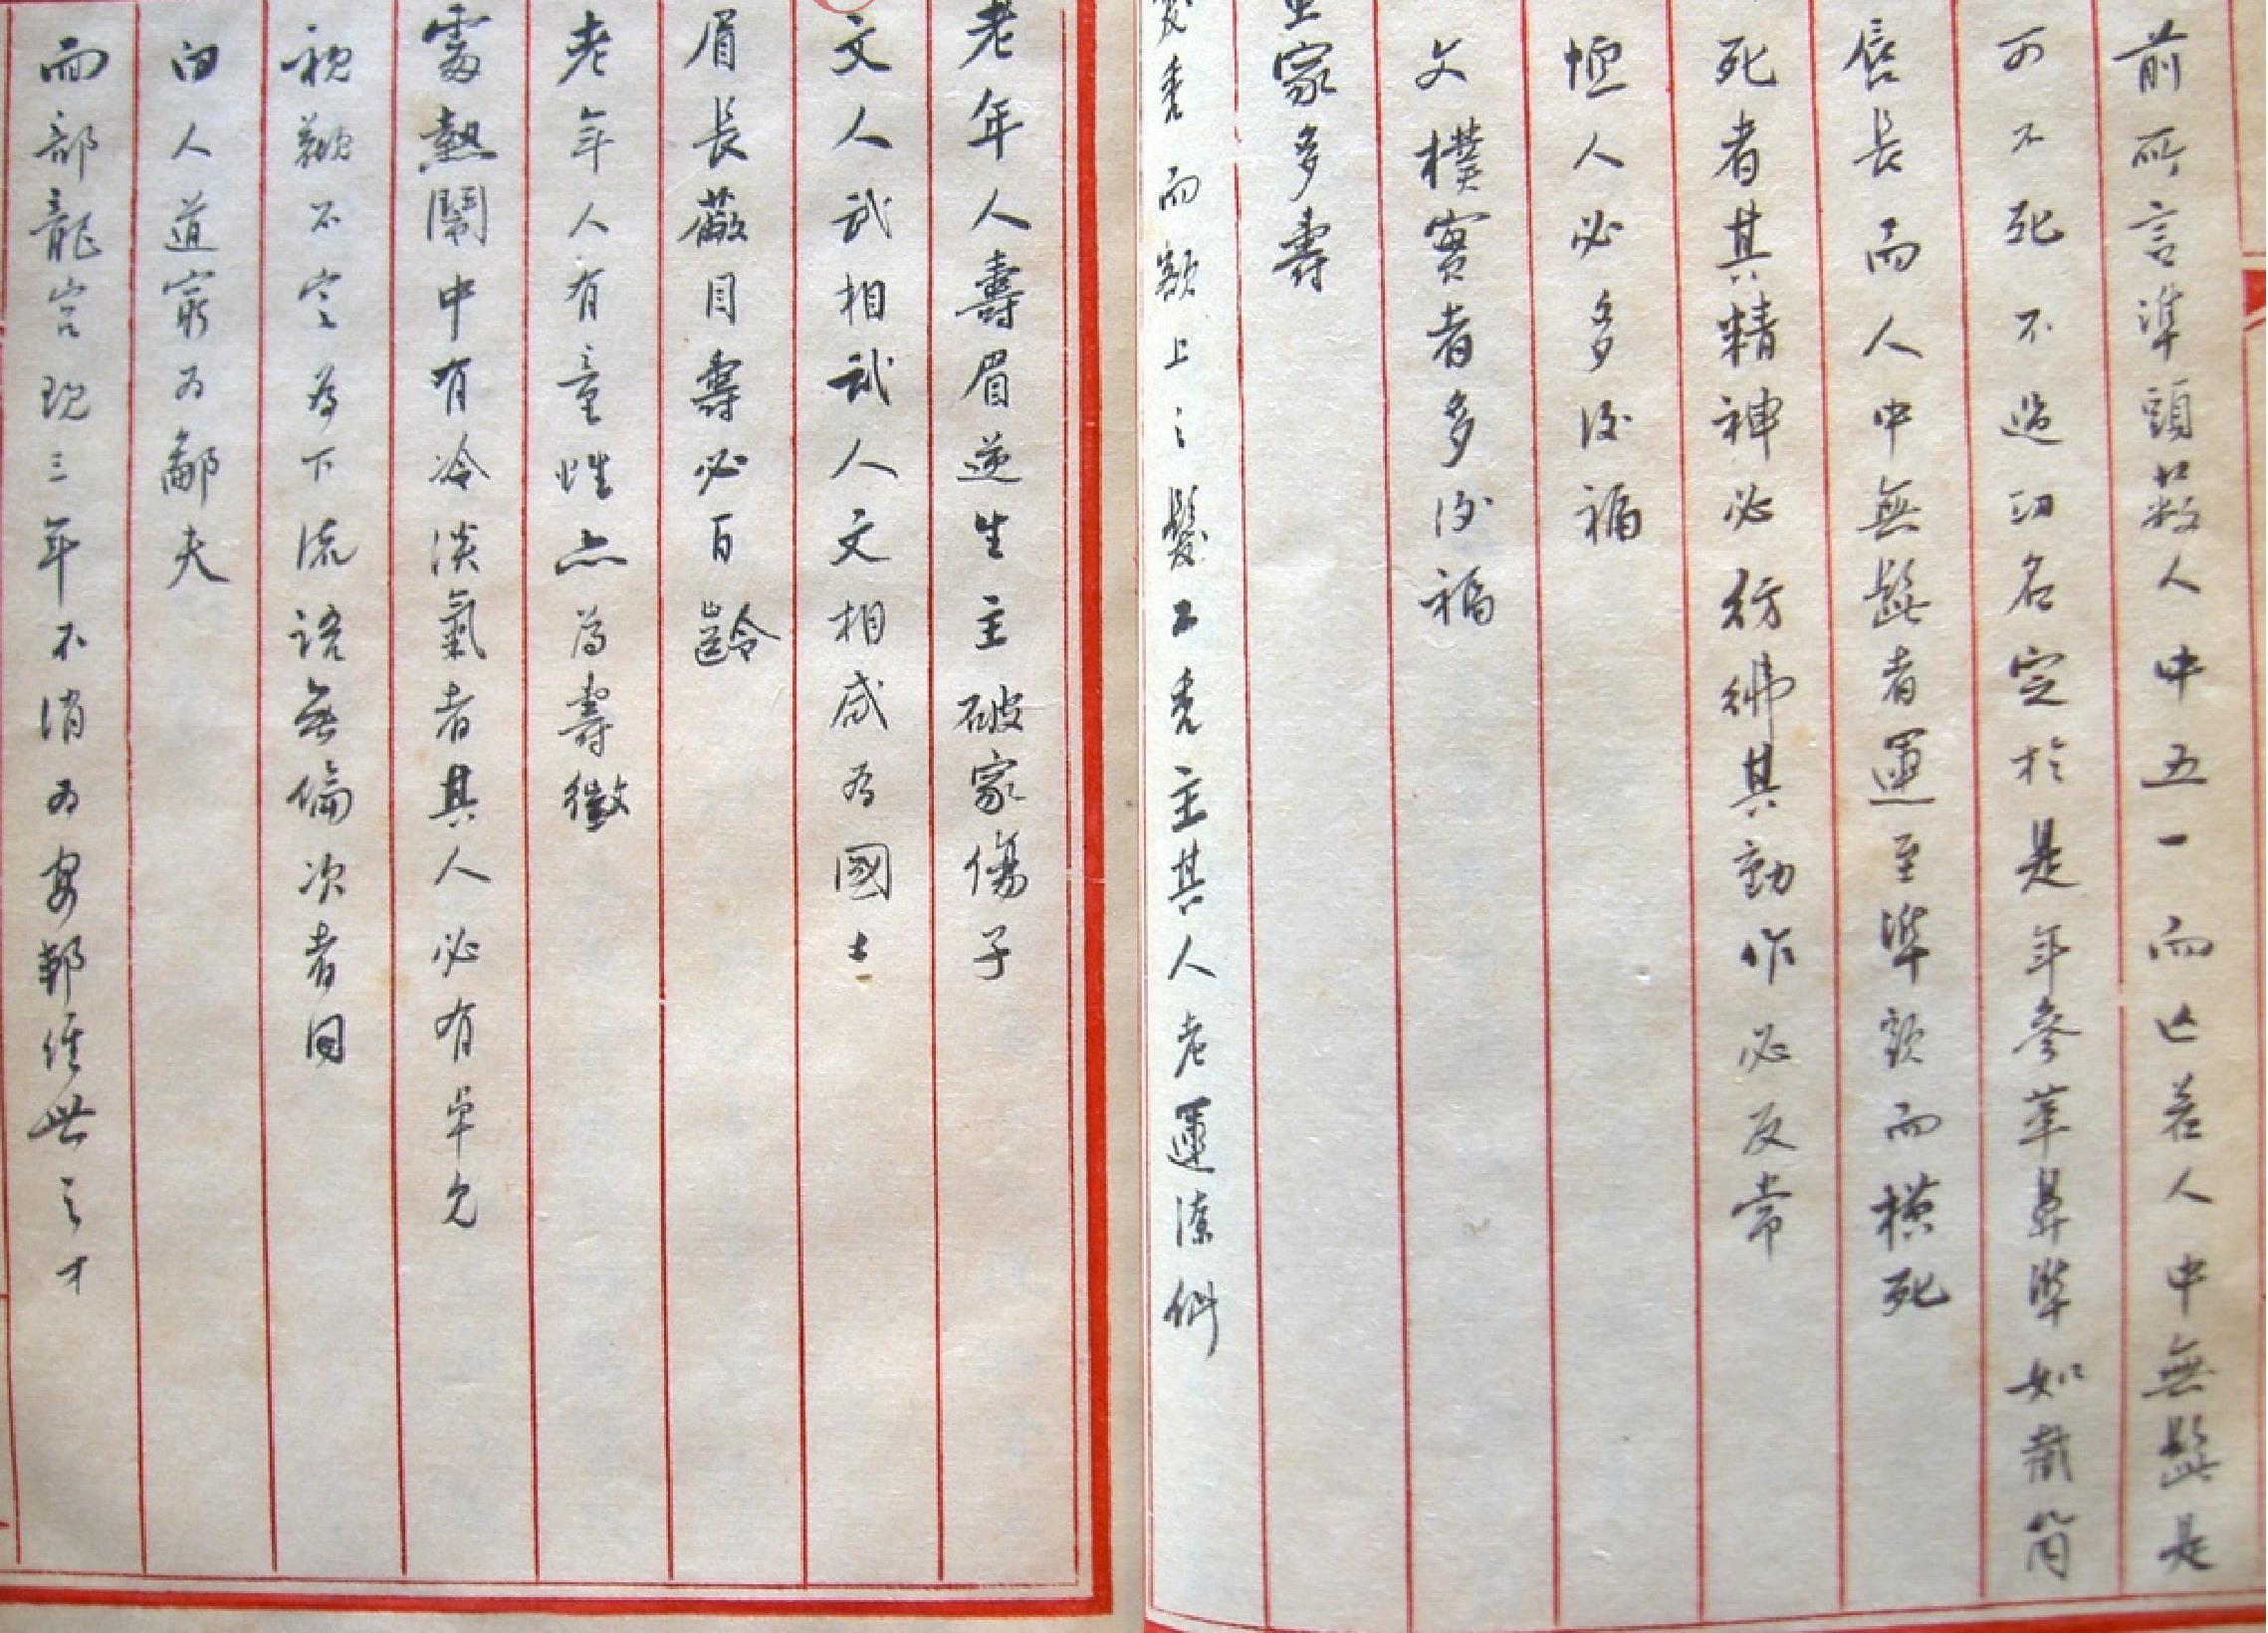 前所言準頭數人中五一而亡若人中無髭是
可不死不過功名定於是年參革鼻準如截筒
唇長而人中無髭者運至準頭而橫死
死者其精神必彷彿其動作必反常
恒人必多後福
文樸實者多後福
家多壽
髮禿而額上之髮不禿主其人老運潦倒
老年人壽眉逆生主破家傷子
文人武相武人文相咸為國士
眉長蔽目壽必百齡
老年人有童性亦為壽徵
當熱鬧中有冷淡氣者其人必有卓見
視觀不定為下流語無倫次者同
白人道窮為鄙夫
而部龍宮現三年不消為安邦經世之才